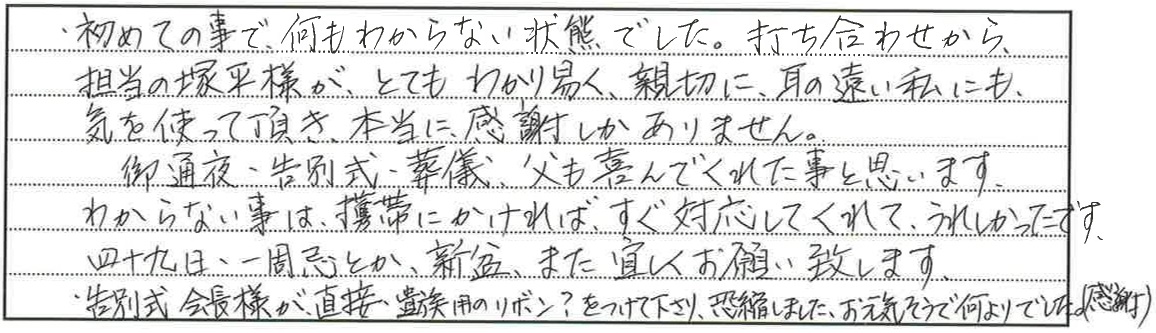 ・初めての事で、何もわからない状態でした。打ち合わせから、
担当の塚平様が、とても わかり易く、親切に、耳の遠い私にも、
気を使って頂き、本当に、感謝しかありません。
御通夜・告別式・葬儀、父も喜んでくれた事と思います、
わからない事は、携帯にかければ、すぐ対応してくれて、うれしかったです、
四十九日、一周忌とか、新盆、また 宜しくお願い致します、
・告別式 会長様が、直接、遺族用のリボン?をつけて下さり、恐縮しました、お元気そうで何よりでした。(感謝)